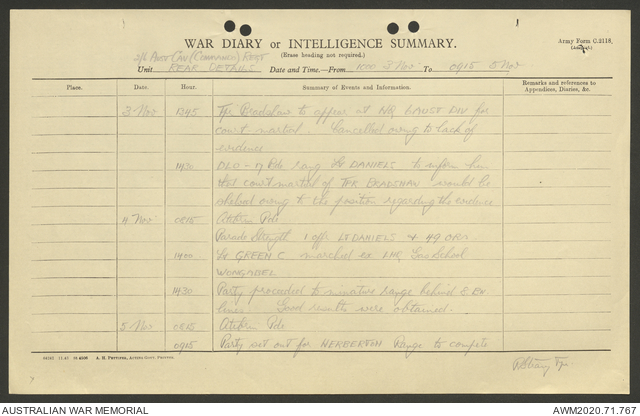 WAR DIARY or INTELLIGENCE SUMMARY.
(Erase heading not required.)
Army Form C.2118,
2/6 Aust Cav (Commando) Regt
Unit REAR DETAILS Date and Time.—From 1000 3 Nov To 0915 5 Nov
Place. Date. Hour. Summary of Events and Information. Remarks and references to Appendices, Diaries, &c.
3 Nov 1345 Tpr Bradshaw to appear at HQ AUST DIV for
court martial. Cancelled owing to lack of
evidence
1430 17 Bde rang Lt DANIELS to inform him
that court martial of TPR BRADSHAW would be
shelved owing to the position regarding the evidence
4 Nov 0815 Atebrin Pde
Parade Strength 1 offr Lt DANIELS + 49 ORs
1400 Lt GREEN C marched ex LHQ Gas School
WONGABEL
1430 Party proceeded to miniature range behind 8 Bn
lines. Good results were obtained.
5 Nov 0815 Atebrin Pde
0915 Party set out for HERBERTON Range to compete
A. H. PETTIFER, ACTING GOVT. PRINTER.
AUSTRALIAN WAR MEMORIAL
AWM2020.71.767